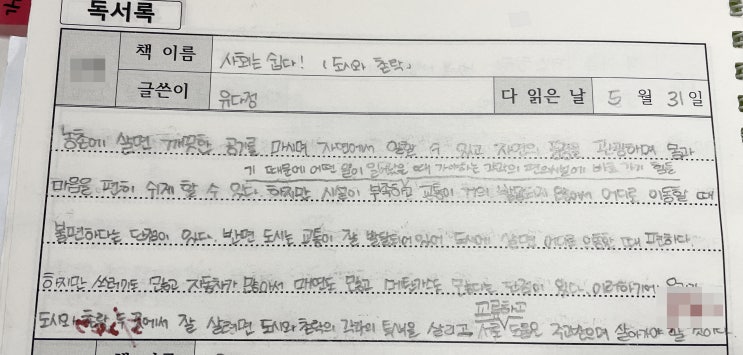 독서록
책 이름 사회는 쉽다! (도시와 촌락)
글쓴이 유다정 다 읽은 날 5 월 31 일
농촌에 살면 깨끗한 공기를 마시며 자연에서 수 있고 자연의 관광하며 몸과
기 때문에 어떤 일이 때 가야하는 편의시설에 바로 가기 힘들
마음을 편히 쉬게 할 수 있다. 하지만 시설이 부족하고 교통이 거의 않아서 어디로 이동할 때
불편하다는 단점이 있다. 반면 도시는 교통이 잘 발달되어 있어 도시에 살면 어디로 이동할 때 편하다.
하지만 쓰레기도 많고 자동차가 많아서 매연도 많고 단점이 있다.
교류하고
도시와 촌락 두 곳에서 잘 살려면 도시와 촌락의 각각의 특색을 살리고 서로 도움을 주고받으며 살아가야 할 것이다.
책 이름